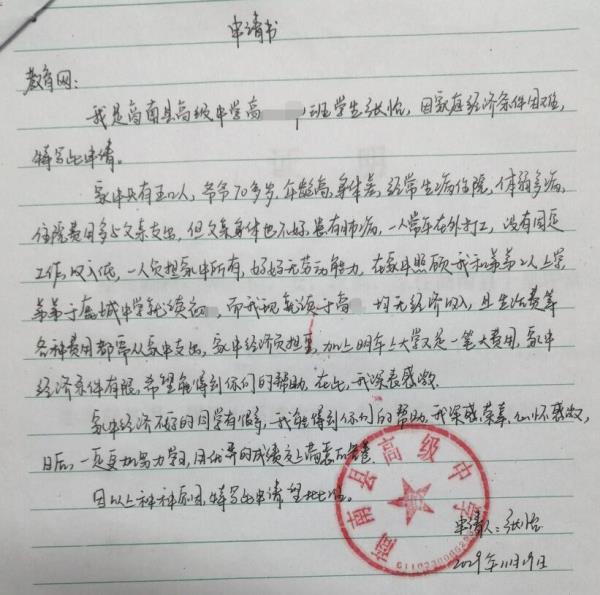 申请书
教育网:
我是商南县高级中学高 班学生张怡,因家庭经济条件困难,
特写此申请。
家中共有五口人,爷爷70多岁,年龄高,身体差,经常生病住院,体弱多病,
住院费用多与父亲支出,但父亲身体也不好,患有肺病,一人常年在外打工,没有固定
工作,收入低,一人负担家中所有,妈妈无劳动能力,在家中照顾我和弟弟2人上学,
弟弟于鹿城中学就读初 ,而我现就读于高 均无经济收入,且生活费等
各种费用都需从家中支出,家中经济负担重,加上明年上大学又是一笔大费用,家中
经济条件有限,希望能得到你们的帮助,在此,我深表感激.
家中经济不好的同学有很多,我能得到你们的帮助,我深感荣幸,心怀感激,
日后,一定更加努力学习,用优异的成绩交上满意的答卷
因以上种种原因,特写此申请,望批准。
商南县高级中学
申请人:张怡
年11月19日